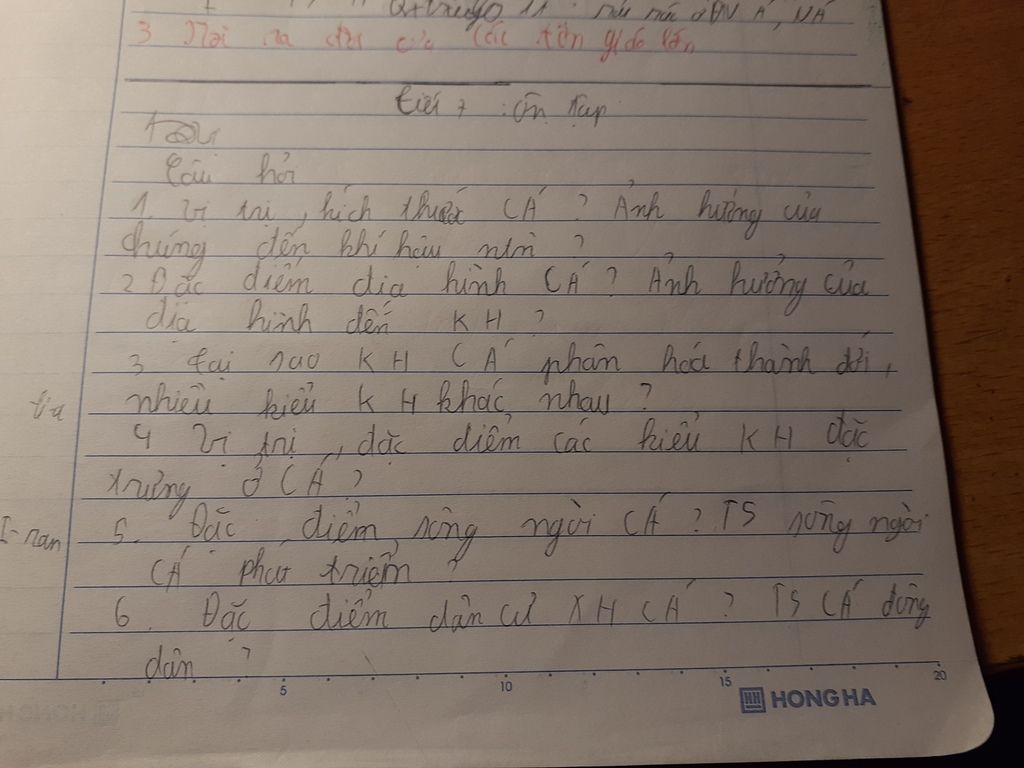 3 Nơi ra đời của các tôn giáo lớn
tiết 7 : ôn tập
Câu hỏi
1. Vị trí, kích thước CÁ ? Ảnh hưởng của
chúng đến khí hậu ntn ?
2 Đặc điểm địa hình CÁ ? Ảnh hưởng của
địa hình đến KH ?
3 tại sao KH CÁ phân hoá thành đới,
nhiều kiểu KH khác nhau ?
4 Vị trí, đặc điểm các kiểu KH đặc
trưng ở CÁ ?
5. Đặc điểm sông ngòi CÁ ? TS sông ngòi
I-ran
CÁ phát triển ?
6. Đặc điểm dân cư XH CÁ ? TS CÁ đông
dân ?
5 10 15 20
HONG HA